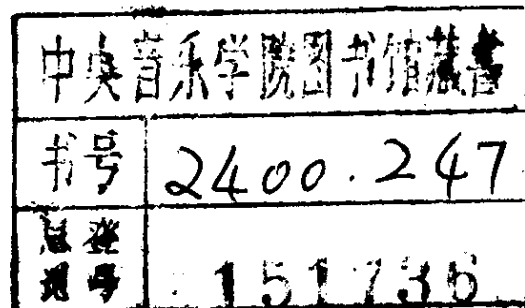 中央音乐学院图书馆藏書
书号 2400.247
总登记号 151736